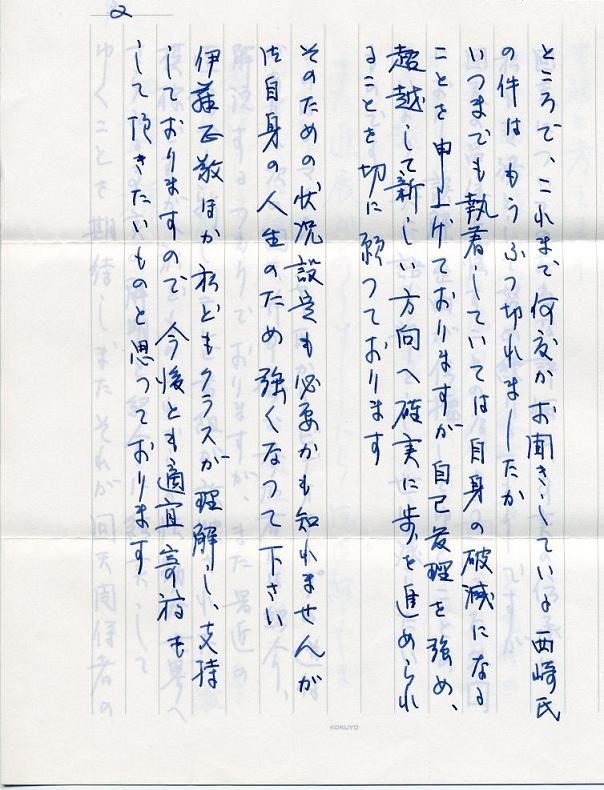 2
ところで、これまで何度かお聞きしている西崎氏
の件はもうふつ切れましたか
いつまでも執着していては自身の破滅になる
ことを申上げておりますが 自己管理を強め、
超越して新しい方向へ確実に歩を進められ
ることを切に願つております
そのための状況設定も必要かも知れませんが
御自身の人生のため強くなつて下さい
伊藤正敬ほか私どもクラスが理解し、支持
しておりますので 今後とも適宜
して頂きたいものと思つております
KOKUYO